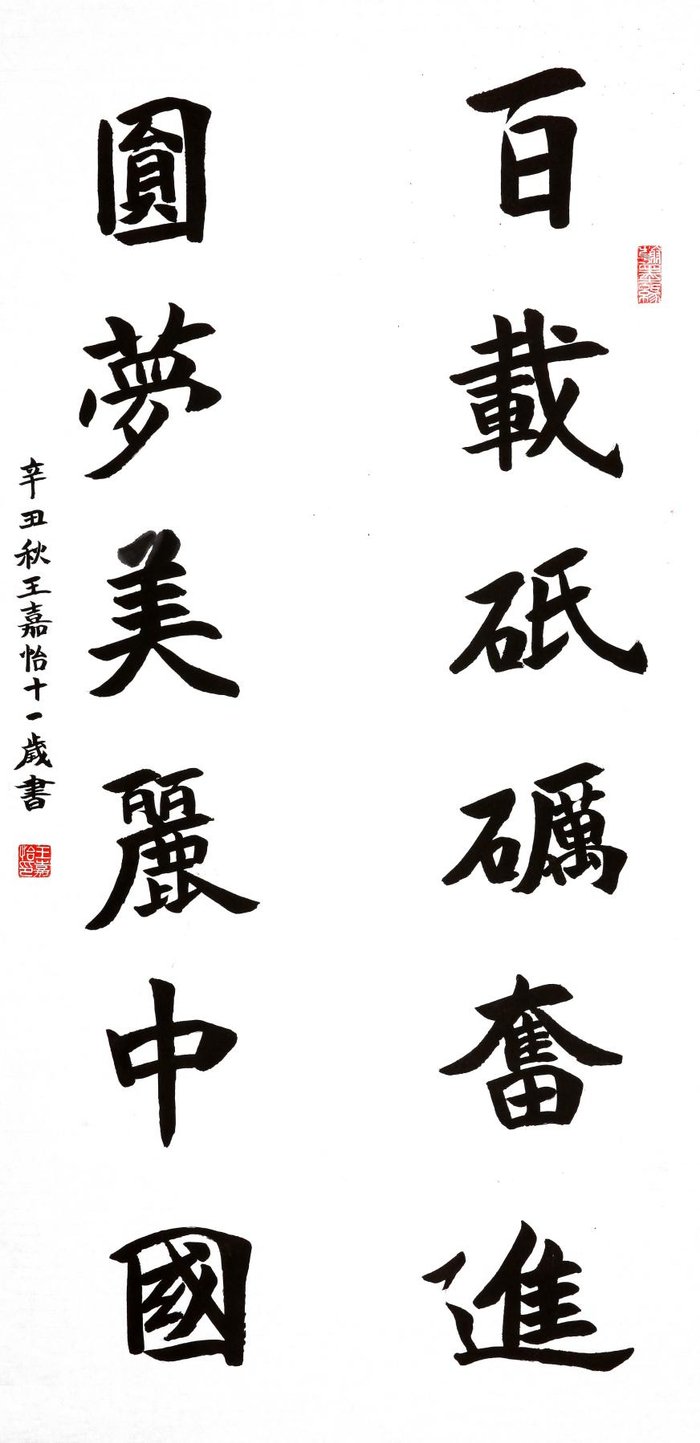 百載砥礪奮進
圓夢美麗中國
辛丑秋王嘉怡十一歲書
王嘉怡印